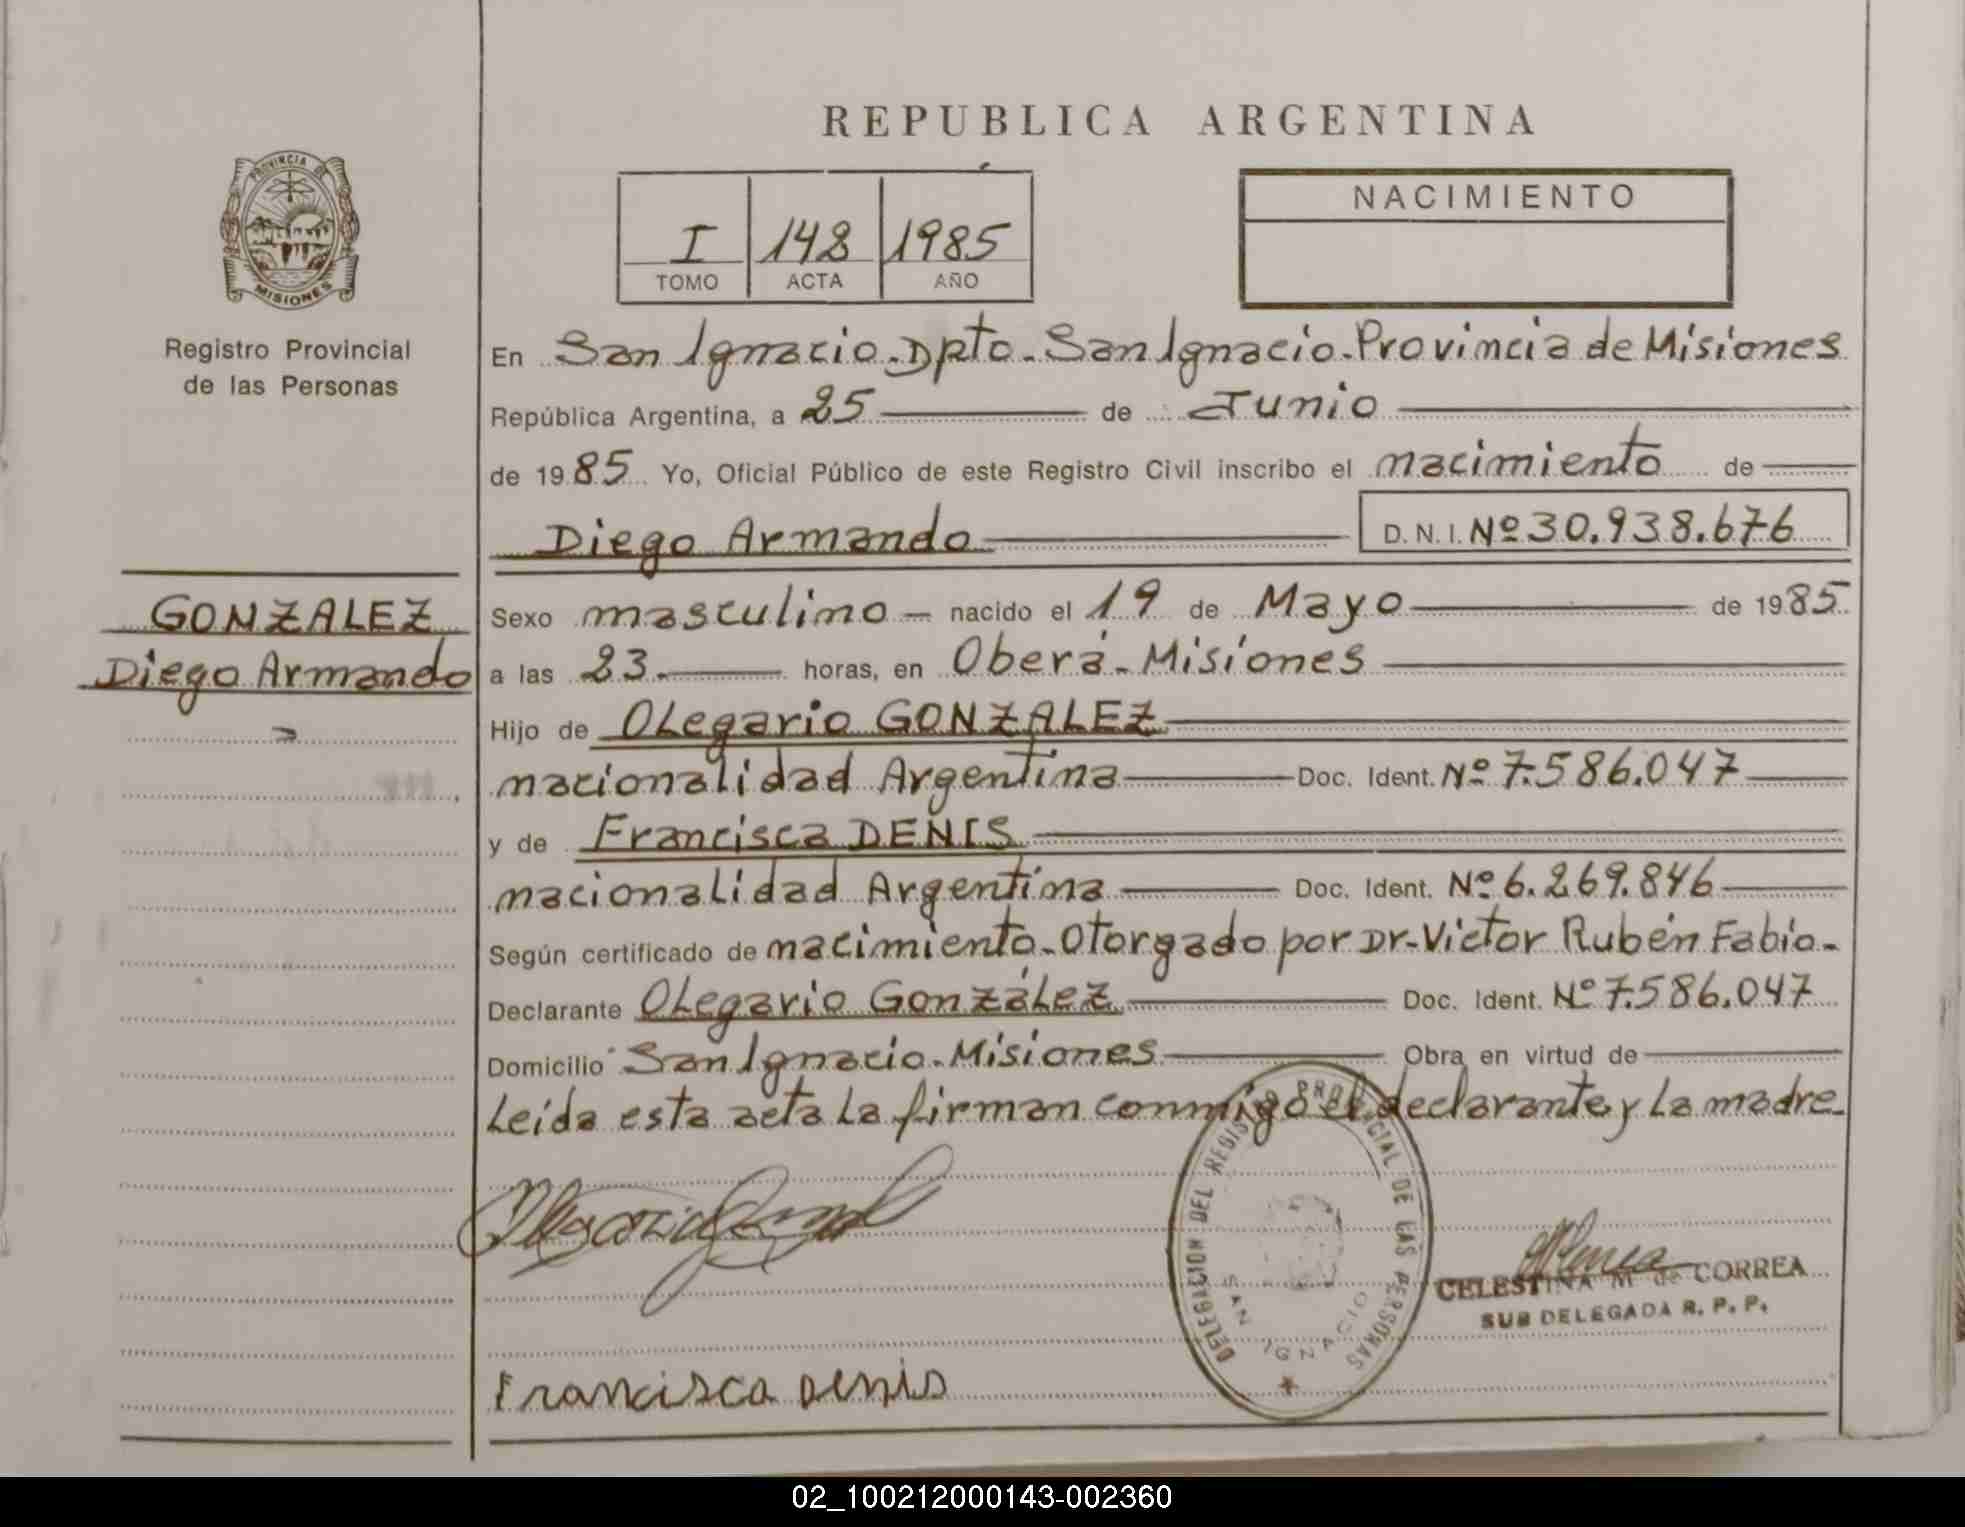 REPUBLICA ARGENTINA
PROVINCIA DE
MISIONES
Registro Provincial
de las Personas
I 148 1985
TOMO ACTA AÑO
NACIMIENTO
En San Ignacio.Dpto.San Ignacio.Provincia de Misiones
República Argentina, a 25 de Junio
de 1985 Yo, Oficial Público de este Registro Civil inscribo el nacimiento de
Diego Armando D. N. I. Nº 30.938.676
GONZALEZ
Diego Armando
Sexo masculino nacido el 19 de Mayo de 1985
a las 23 horas, en Oberá-Misiones
Hijo de OLegario GONZALEZ
nacionalidad Argentina Doc. Ident. Nº 7.586.047
y de Francisca DENIS
nacionalidad Argentina Doc. Ident. Nº 6.269.846
Según certificado de nacimiento.Otorgado por Dr.Victor Rubén Fabio.
Declarante OLegario González Doc. Ident. Nº 7.586.047
Domicilio San Ignacio.Misiones Obra en virtud de
Leída esta acta La firman conmigo el declarante y La madre
DELEGACION DEL REGISTRO PROVINCIAL DE LAS PERSONAS
SAN IGNACIO
CELESTINA M de CORREA
SUB DELEGADA R. P. P.
Francisca Denis
02_100212000143-002360